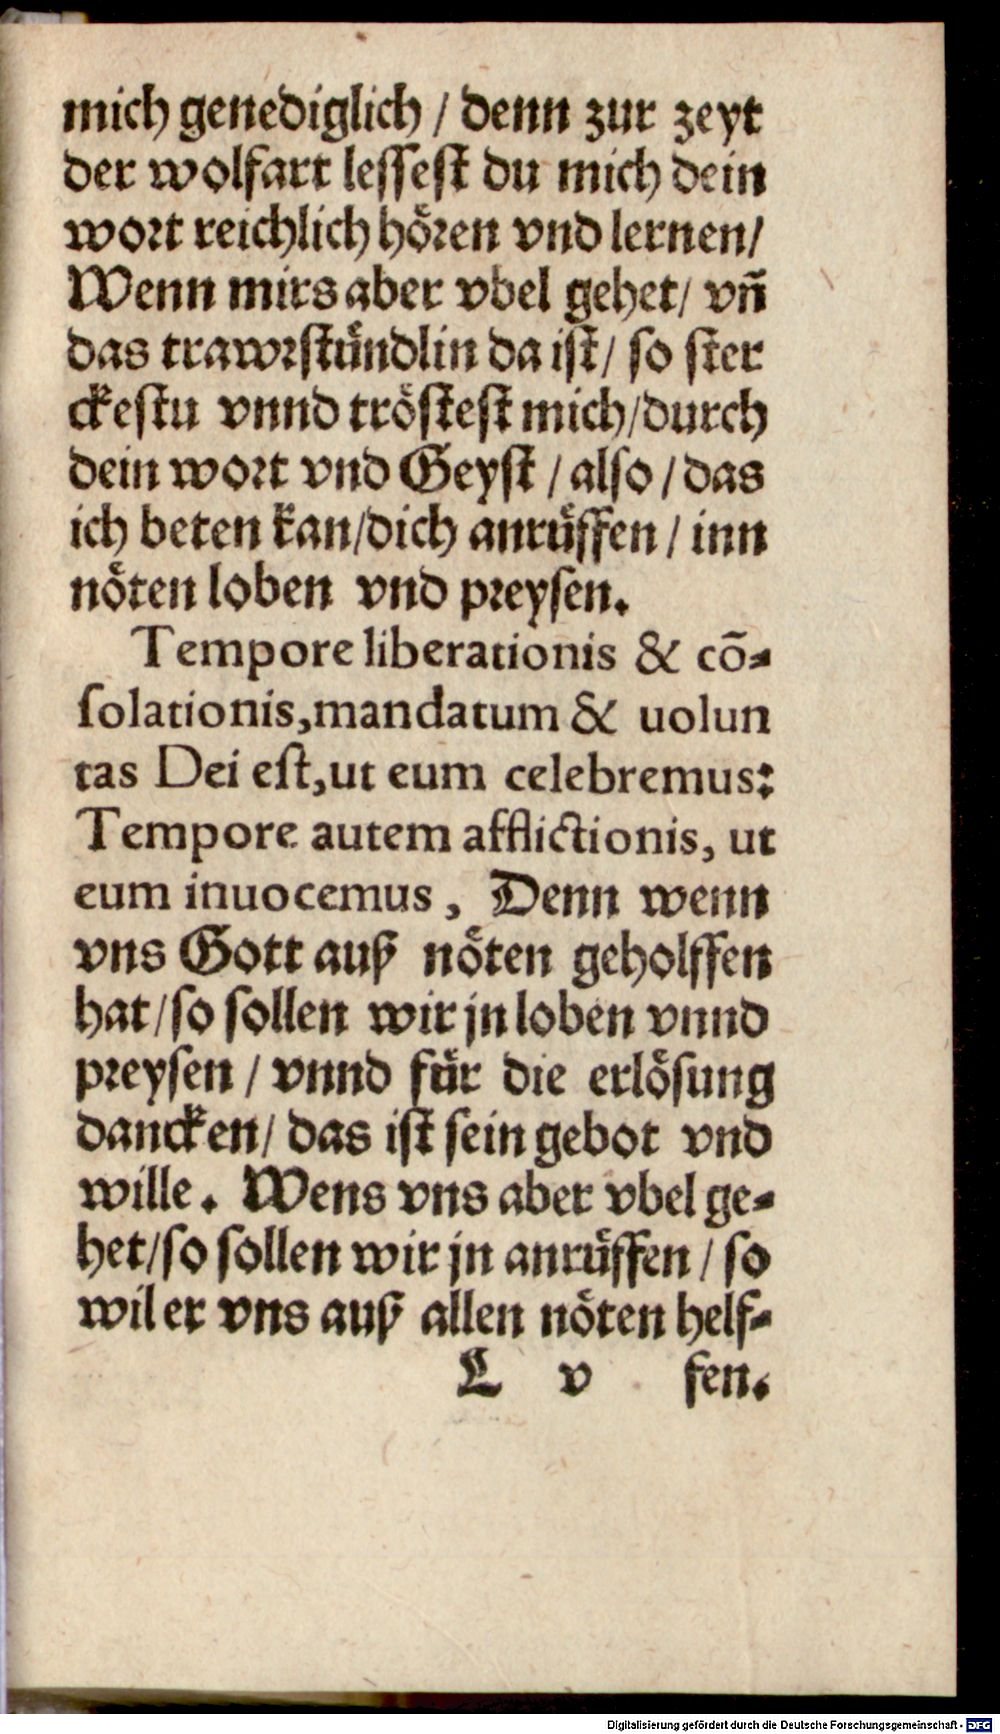 mich genediglich / denn zur zeyt
der wolfart lessest du mich dein
wort reichlich hören vnd lernen/
Wenn mirs aber vbel gehet/ vñ
das trawrstündlin da ist/ so ster
ckestu vnnd tröstest mich/durch
dein wort vnd Geyst / also / das
ich beten kan/dich anrüffen / inn
nöten loben vnd preysen.
Tempore liberationis & cõ-
solationis,mandatum & uolun
tas Dei est,ut eum celebremus:
Tempore autem afflictionis, ut
eum inuocemus, Denn wenn
vns Gott auß nöten geholffen
hat/so sollen wir jn loben vnnd
preysen / vnnd für die erlösung
dancken/ das ist sein gebot vnd
wille. Wens vns aber vbel ge-
het/so sollen wir jn anrüffen / so
wil er vns auß allen nöten helf-
L v fen.
Digitalisierung gefördert durch die Deutsche Forschungsgemeinschaft - DFG